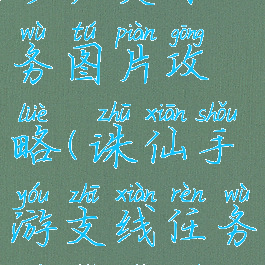 wù tú piàn gōng
务图片攻
lüè zhū xiān shǒu
略(诛仙手
yóu zhī xiàn rèn wù
游支线任务